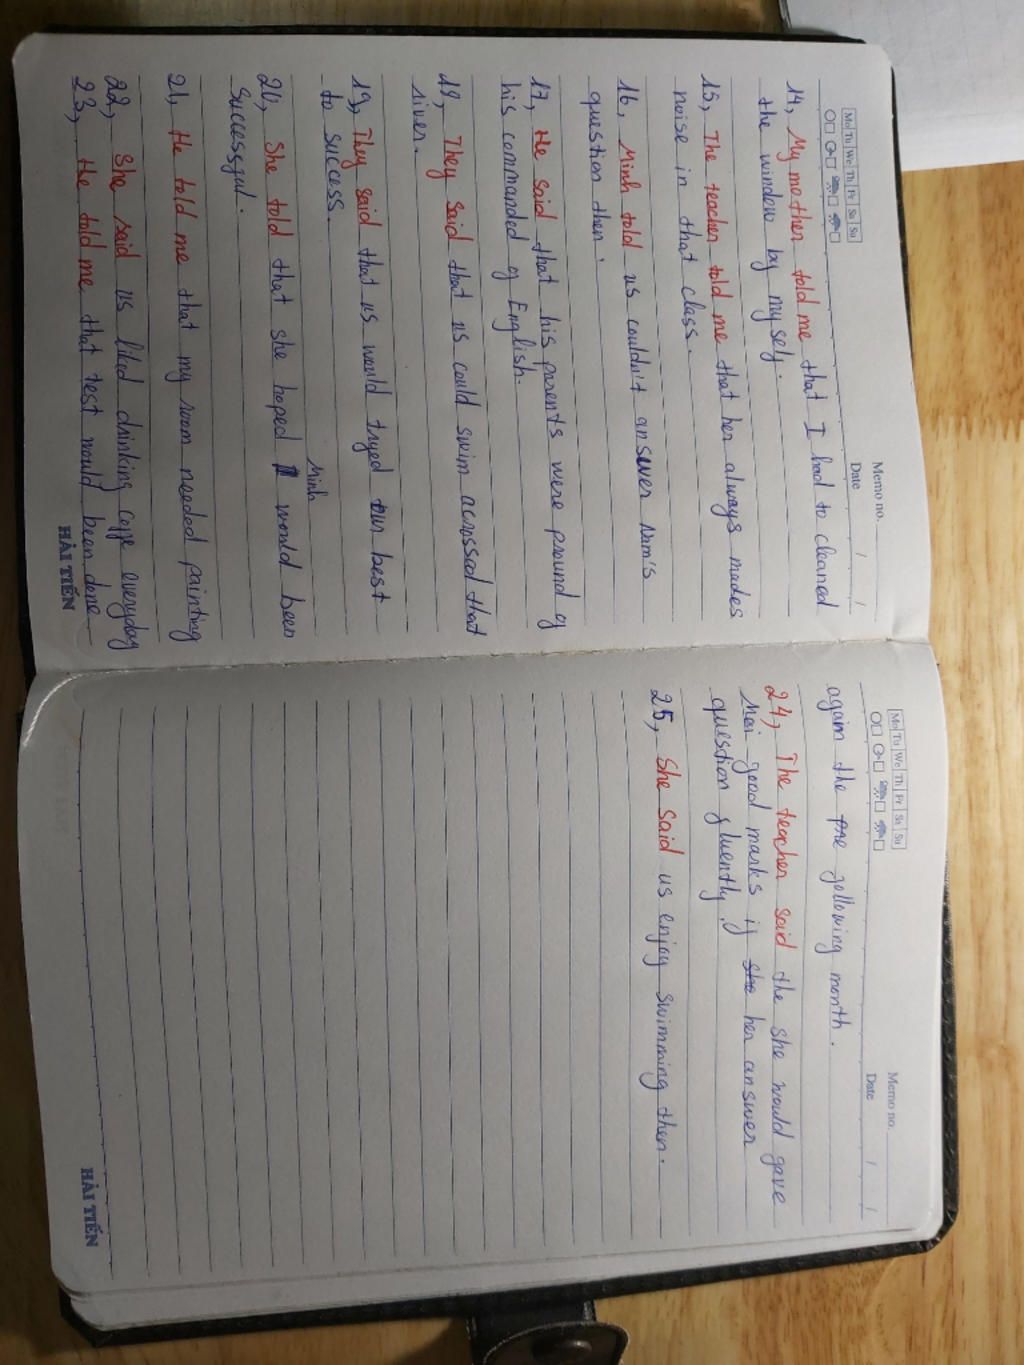 Mo Tu We Th Fr Sa Su
Memo no.
Date / /
14, My mother told me that I had to cleaned
the window by myself.
15, The teacher told me that her always mades
noise in that class.
16, Minh told us couldn't answer Nam's
question then.
17, He said that his parents were pround of
his commanded of English.
18, They said that us could swim acrossed that
river.
19, They said that us would tryed our best
to success.
Minh
20, She told that she hoped would been
successful.
21, He told me that my room needed painting
22, She said us liked drinking coffe everyday
23, He told me that test would been done
HẢI TIẾN
Mo Tu We Th Fr Sa Su
Memo no.
Date / /
again the following month.
24, The teacher said the she would gave
Mai good marks if she her answer
question fluently.
25, She said us enjoy swimming then.
HẢI TIẾN